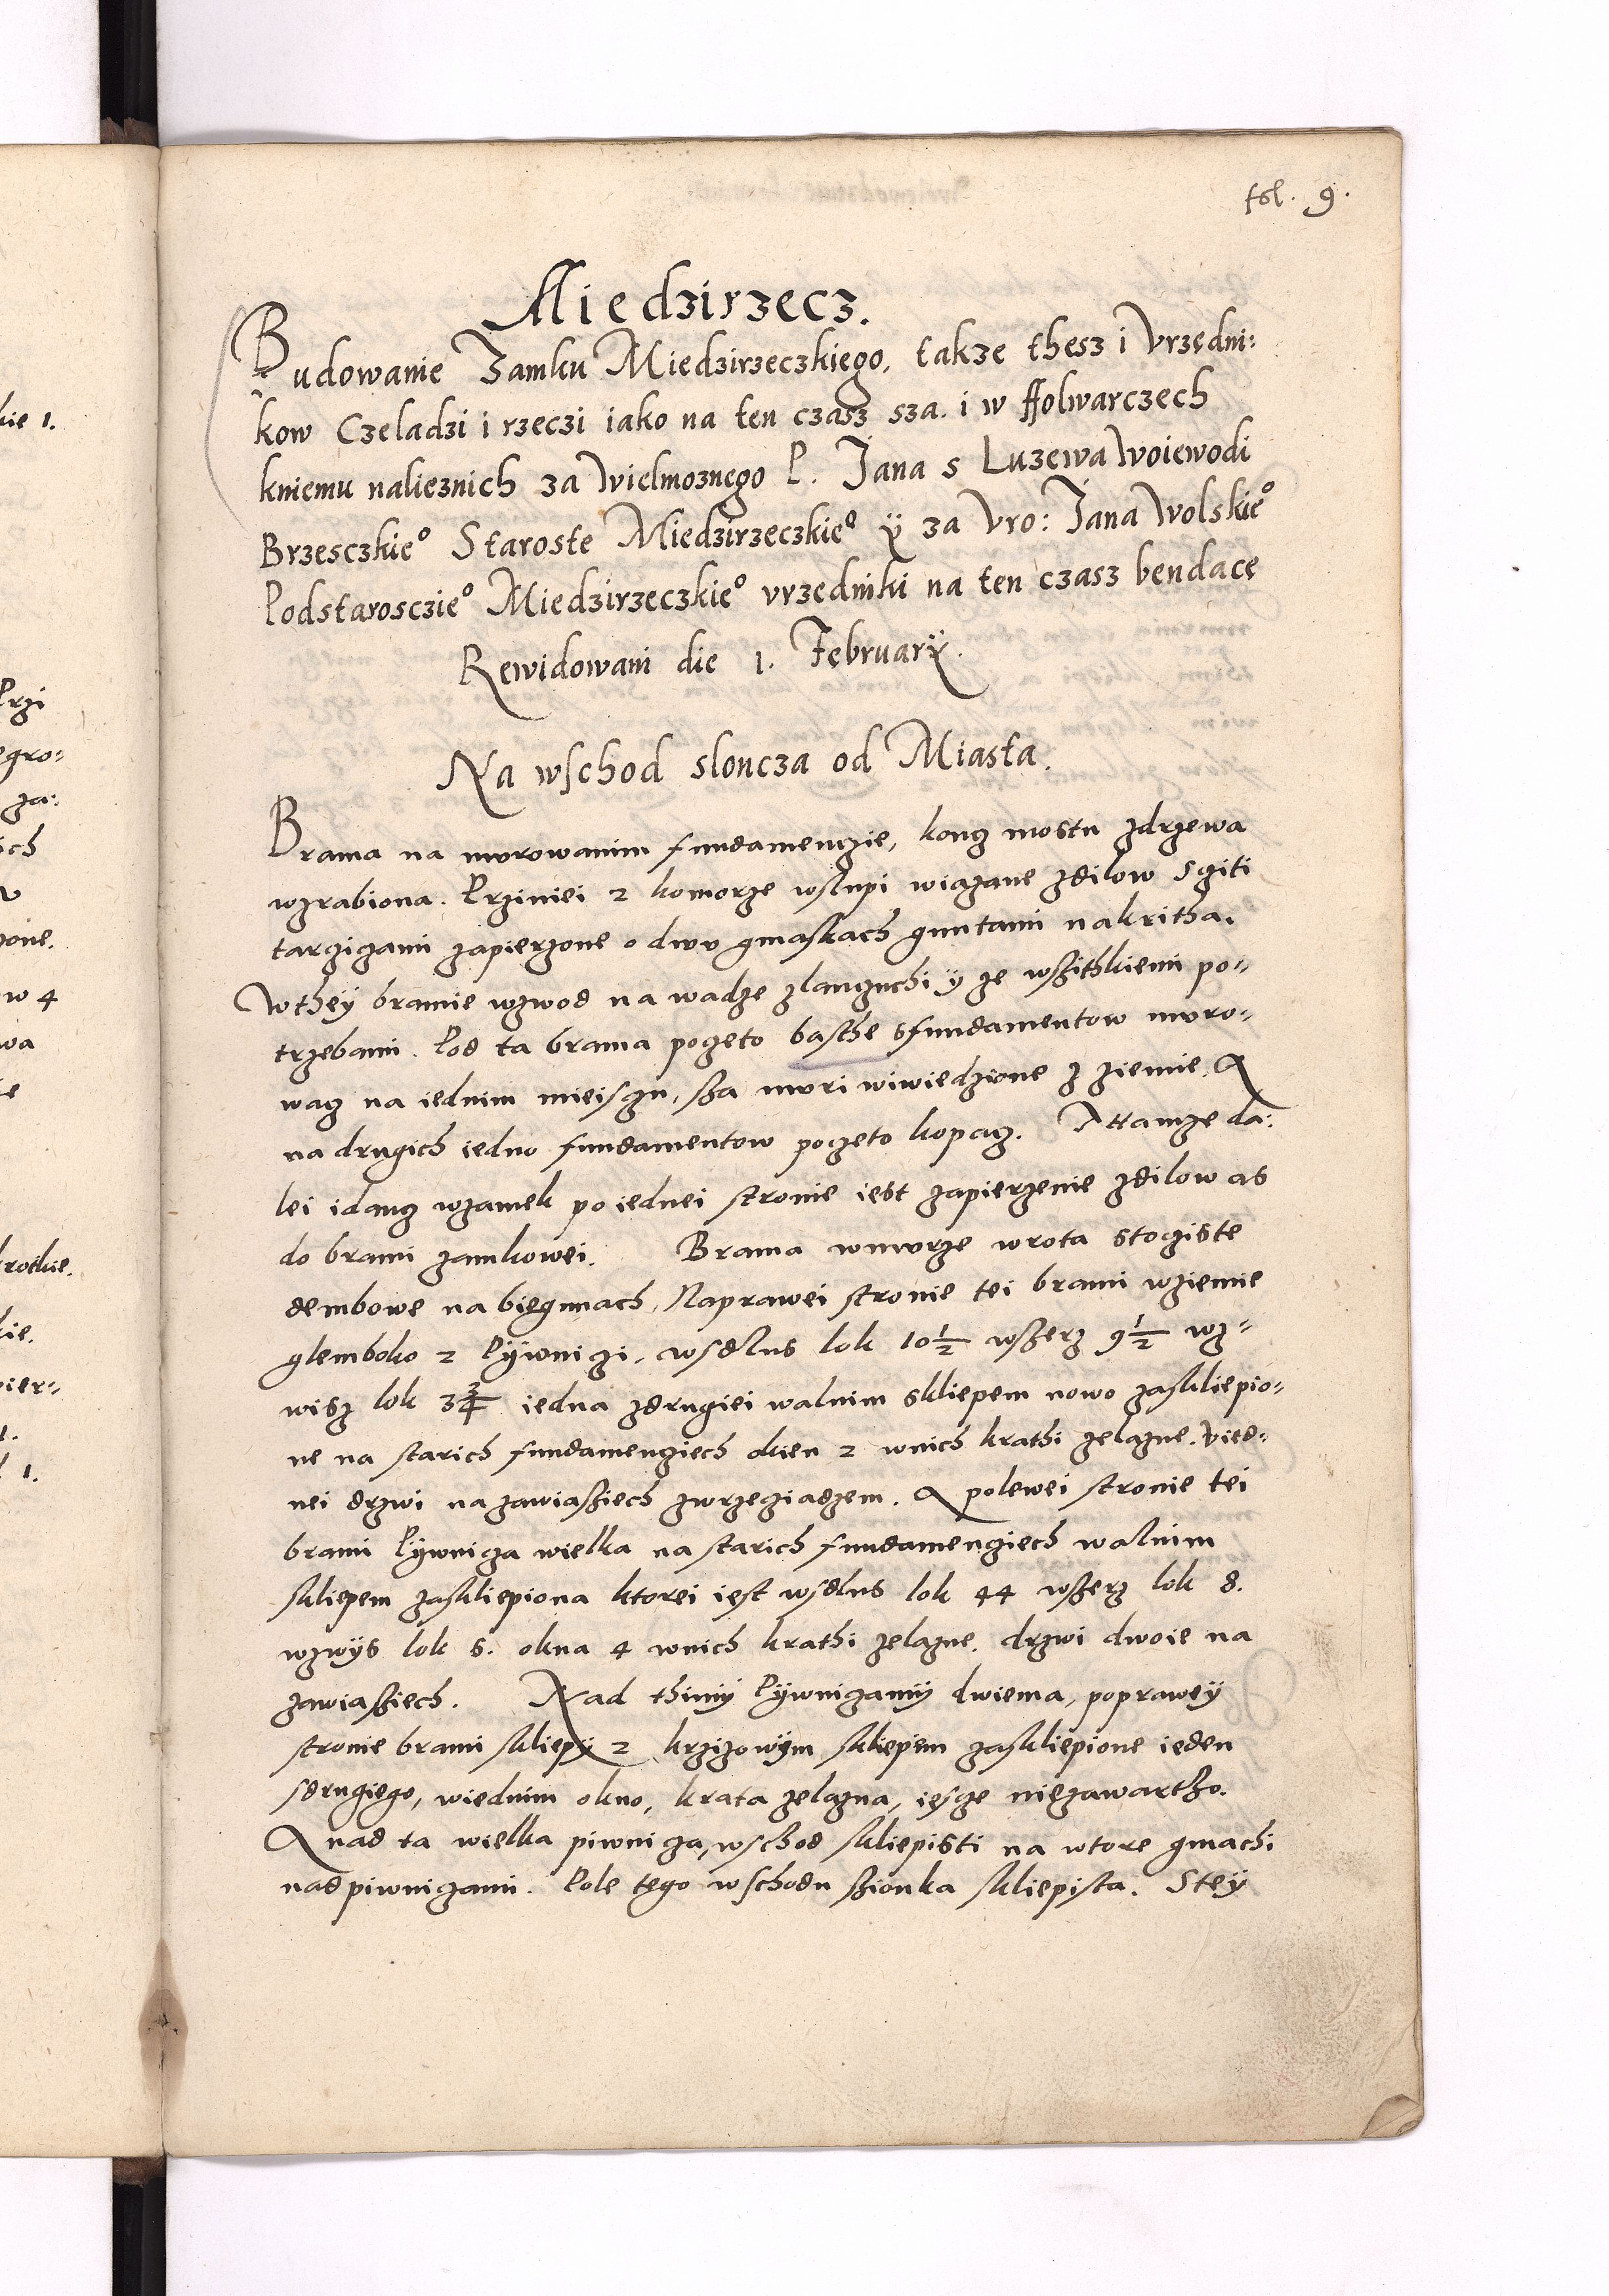 fol. 9.
Miedzirzecz.
Budowanie Zamku Miedzirzeczkiego, takze thesz i Vrzędni:
kow Czeladzi i rzeczi iako na ten czasz sza. i w ffolwarczech
kniemu należnich za Wielmoznego P. Jana s Luzewa Woiewodi
Brzesczkie° Staroste Miedzirzeczkie° ÿ za Vro: Jana Wolskie°
Podstarosczie° Miedzirzeczkie° vrzedniki na ten czasz bendacę
Rewidowani die 1. Februarÿ.
Na wschod sloncza od Miasta.
Brama na murowanim fundamenczie, koncz mostu zdrzewa
wzrabiona. Prziniei 2 komorze wslupi wiazane zdilow sziti
tarczizami zapierzone o dwu gmaskach guntami nakritha.
Wtheÿ bramie wzwod na wadze zlanczuchi ÿ ze wszithkiemi po-
trzebami. Pod ta brama poczeto basthe sfundamentow muro-
wacz na iednim mieisczu, sza muri wiwiedzione z ziemie, A
na drugich iedno fundamentow poczeto kopacz. A tamze da:
lei idancz wzamek po iednei stronie iest zapierzenie zdilow as
do brami zamkowei. Brama wmurze wrota stocziste
dembowe na biegunach, Naprawei stronie tei brami wziemie
glemboko 2 Pÿwniczi, wsdlus lok 10½ wszerz 9½ wz-
wisz lok 3¾ iedna zdrugiei walnim skliepem nowo zaskliepio-
ne na starich fundamencziech okien 2 wnich krathi zelazne. Vied-
nei drzwi na zawiasziech zwrzecziadzem. A polewei stronie tei
brami Pÿwnicza wielka na starich fundamencziech walnim
skliepem zaskliepiona ktorei iest wsdlus lok 44 wszerz lok 8.
wzwÿs lok 5. okna 4 wnich krathi zelazne. drzwi dwoie na
zawiasziech. Nad thimÿ Pÿwniczamÿ dwiema, popraweÿ
stronie brami skliepÿ 2 krziżowÿm skliepem zaskliepione ieden
sdrugiego, wiednim okno, krata zelazna, iescze niezawartho.
A nad ta wielka piwnicza, wschod skliepisti na wtore gmachi
nad piwniczami. Pole tego wschodu szionka skliepista. Steÿ